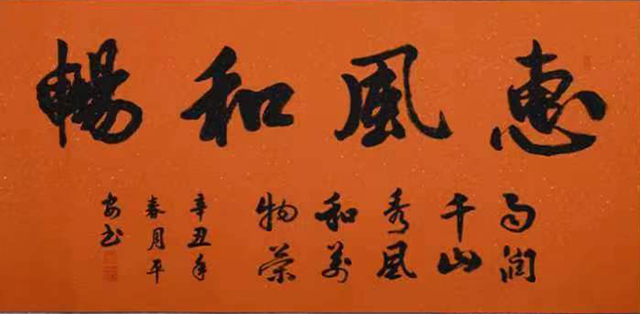 惠風和暢
雨潤
千山
秀風
和萬
物榮
辛丑年
春月平
安書